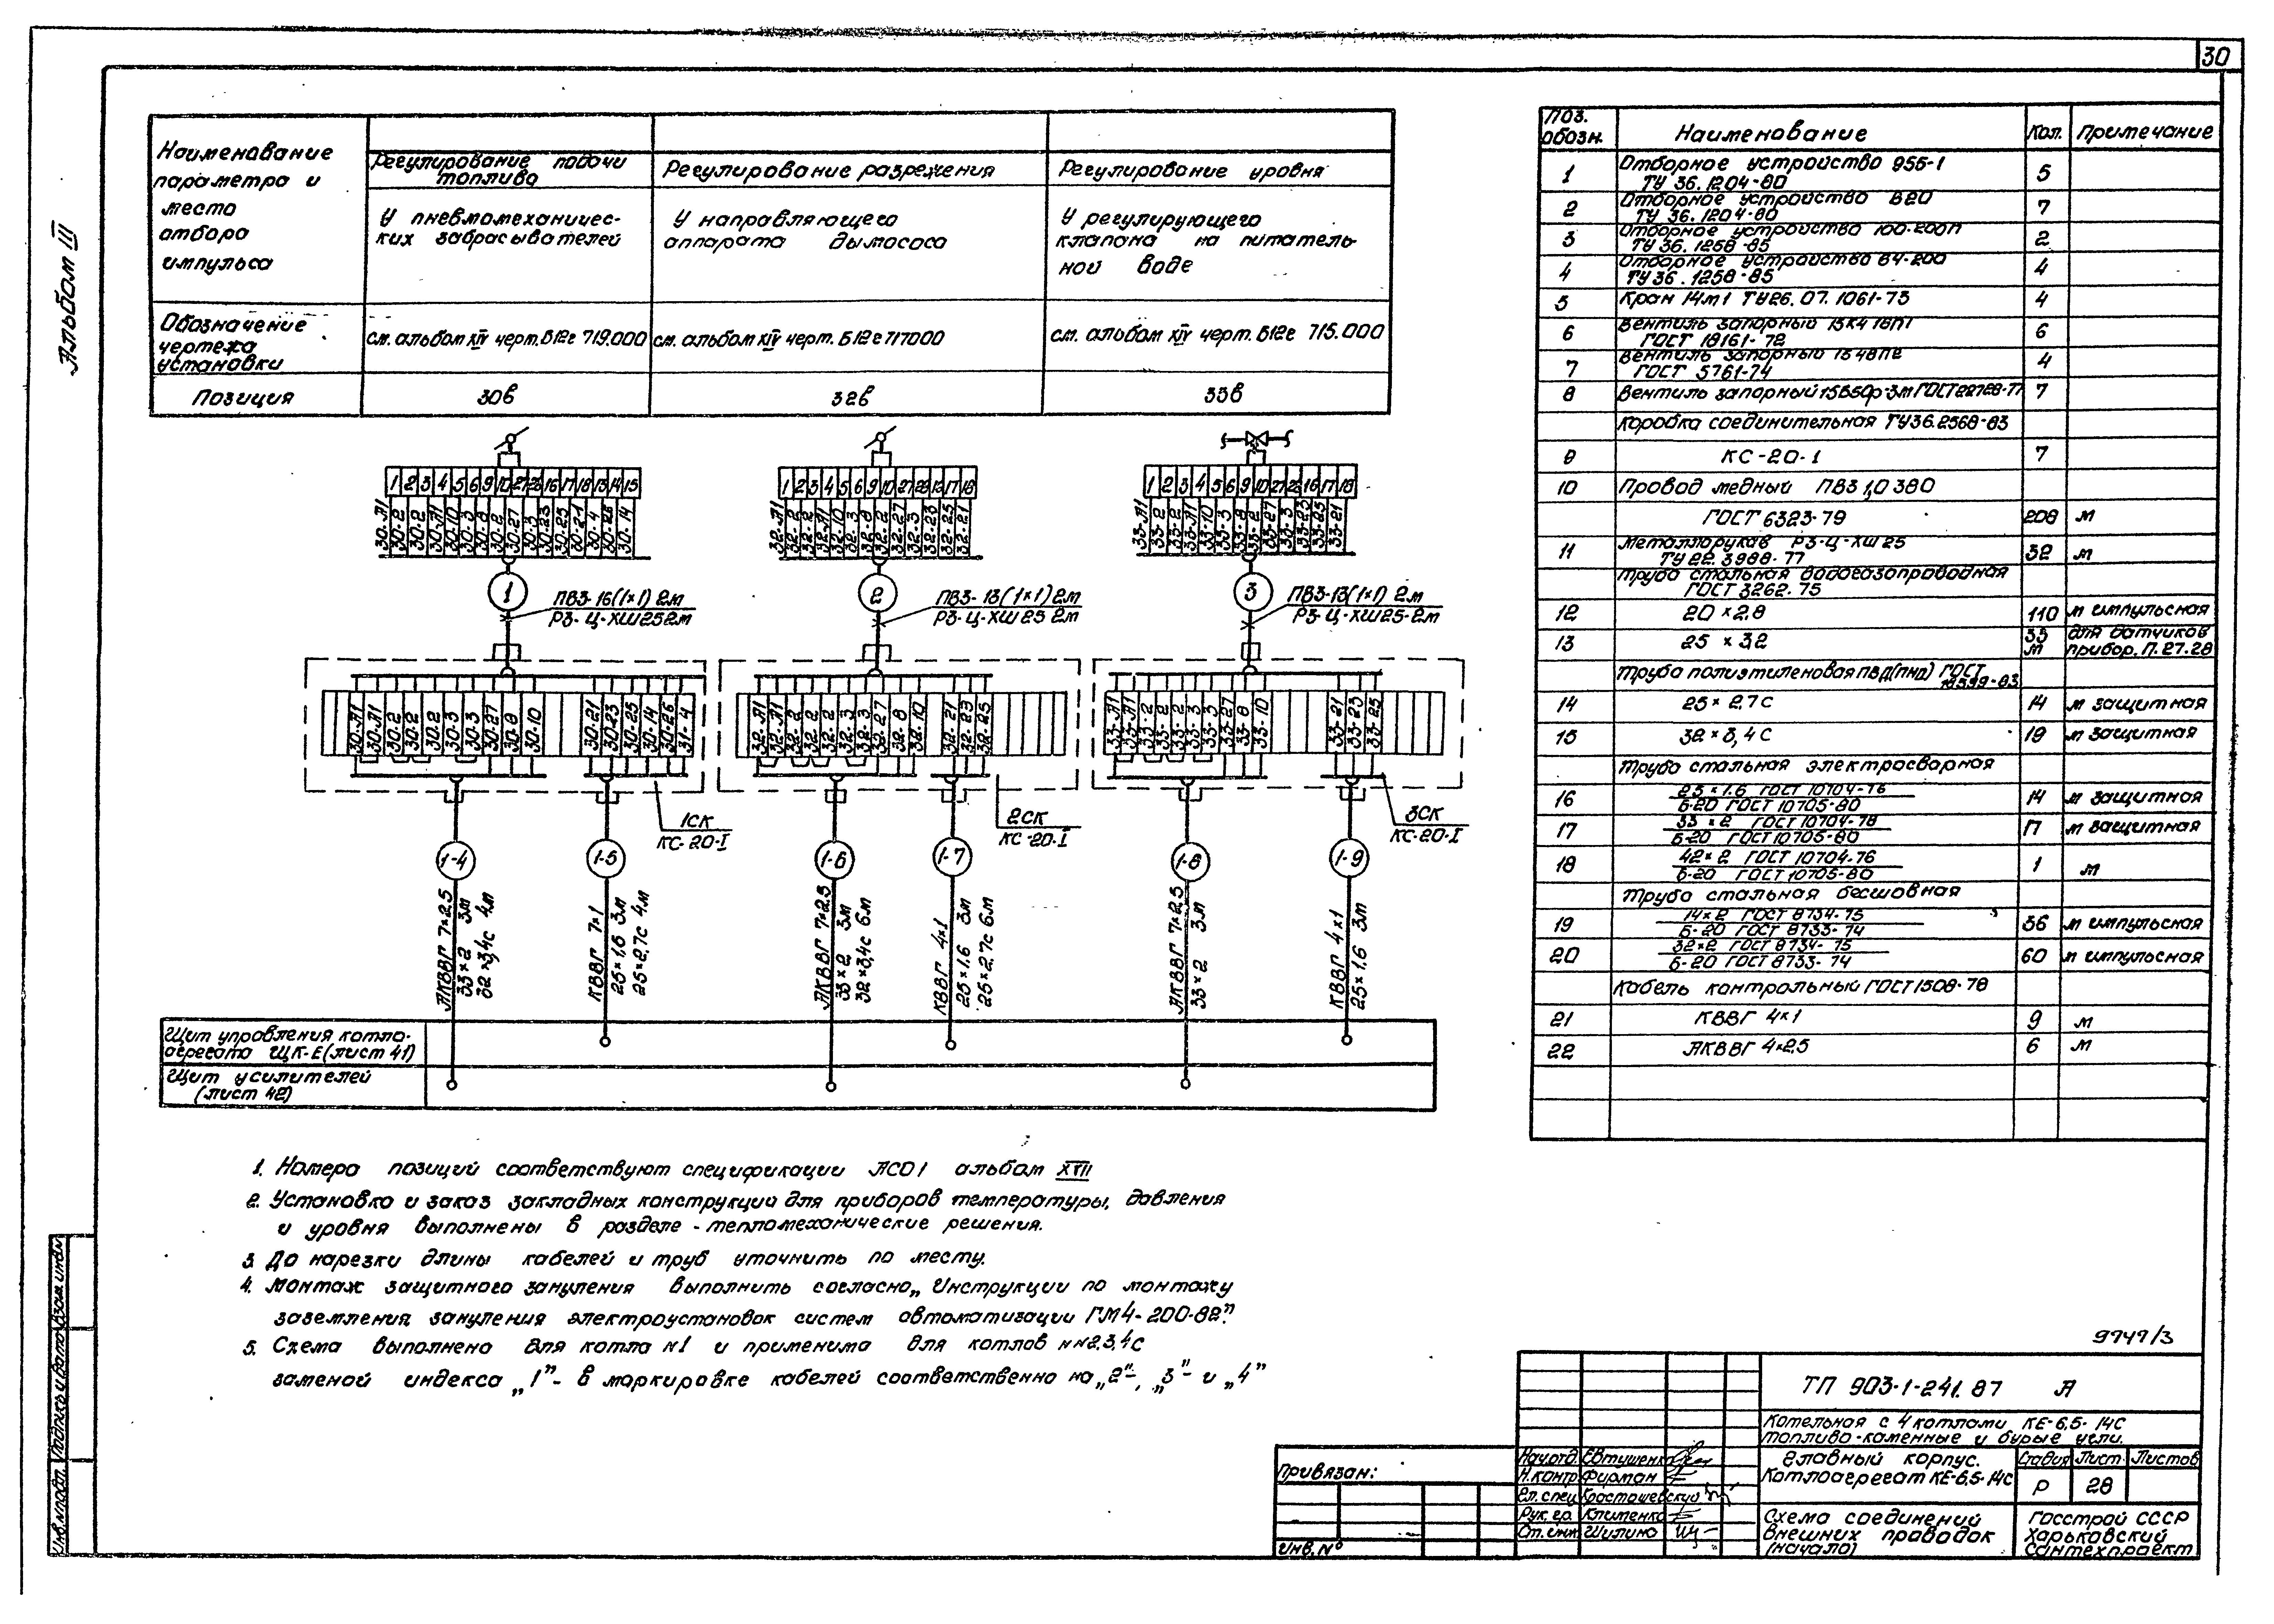 30
Альбом III
Наименование
параметра и
место
отбора
импульса
Регулирование подачи
топлива
Регулирование разрежения
Регулирование уровня
У пневмомеханичес-
ких забрасывателей
У направляющего
аппарата дымососа
У регулирующего
клапана на питатель-
ной воде
Обозначение
чертежа
установки
см. альбом XIV черт. Б12е 719.000
см. альбом XIV черт. Б12е 717000
см. альбом XIV черт. Б12е 715.000
Позиция
30в
32в
33в
1 2 3 4 5 6 9 10 27 28 16 17 18 13 14 15
30-Л1 30-2 30-2 30-Л1 30-10 30-3 30-8 30-2 30-27 30-3 30-23 30-25 30-21 30-4 30-26 30-14
1 2 3 4 5 6 9 10 27 28 12 17 18
32-Л1 32-2 32-2 32-Л1 32-10 32-3 32-8 32-2 32-27 32-3 32-23 32-25 32-21
1 2 3 4 5 6 9 10 27 28 16 17 18
33-Л1 33-2 33-2 33-Л1 33-10 33-3 33-8 33-2 33-27 33-3 33-23 33-25 33-21
1
ПВ3-16(1×1) 2м
РЗ-Ц-ХШ25 2м
2
ПВ3-13(1×1) 2м
РЗ-Ц-ХШ25 2м
3
ПВ3-13(1×1) 2м
РЗ-Ц-ХШ25-2м
30-Л1 30-Л1 30-2 30-2 30-2 30-3 30-3 30-27 30-8 30-10 30-21 30-23 30-25 30-14 30-26 31-4
32-Л1 32-Л1 32-2 32-2 32-2 32-3 32-3 32-27 32-8 32-10 32-21 32-23 32-25
33-Л1 33-Л1 33-2 33-2 33-2 33-3 33-3 33-27 33-8 33-10 33-21 33-23 33-25
1СК
КС-20-I
2СК
КС-20-I
3СК
КС-20-I
1-4
1-5
1-6
1-7
1-8
1-9
АКВВГ 7×2,5
33×2 3м
32×3,4с 4м
КВВГ 7×1
25×1,6 3м
25×2,7с 4м
АКВВГ 7×2,5
33×2 3м
32×3,4с 6м
КВВГ 4×1
25×1,6 3м
25×2,7с 6м
АКВВГ 7×2,5
33×2 3м
КВВГ 4×1
25×1,6 3м
Щит управления котло-
агрегата ЩК-Е (лист 41)
Щит усилителей
(лист 42)
1. Номера позиций соответствуют спецификации АСО1 альбом XVII
2. Установка и заказ закладных конструкций для приборов температуры, давления
и уровня выполнены в разделе - тепломеханические решения.
3. До нарезки длины кабелей и труб уточнить по месту.
4. Монтаж защитного зануления выполнить согласно „Инструкции по монтажу
заземления зануления электроустановок систем автоматизации ГМ4-200-82".
5. Схема выполнена для котла N1 и применима для котлов NN2,3,4 с
заменой индекса „1"- в маркировке кабелей соответственно на „2"-, „3"- и „4"
Поз. обозн. Наименование Кол. Примечание
1 Отборное устройство 95Б-1 5
ТУ 36.1204-80
2 Отборное устройство В20 7
ТУ 36.1204-80
3 Отборное устройство 100-200П 2
ТУ 36.1258-85
4 Отборное устройство ВЧ-200 4
ТУ 36.1258-85
5 Кран 14М1 ТУ26.07.1061-73 4
6 Вентиль запорный 15КЧ 18П1 6
ГОСТ 18161-72
7 Вентиль запорный 15Ч8П2 4
ГОСТ 5761-74
8 Вентиль запорный 15Б50р-3М ГОСТ 22728-77 7
Коробка соединительная ТУ36.2568-83
9 КС-20-1 7
10 Провод медный ПВ3 1,0 380
ГОСТ 6323-79 208 м
11 Металлорукав РЗ-Ц-ХШ25 32 м
ТУ 22.3988-77
Труба стальная водогазопроводная
ГОСТ 3262-75
12 20×2,8 110 м импульсная
13 25×3,2 33 м для датчиков
прибор. П.27.28
Труба полиэтиленовая ПВД(ПНД) ГОСТ
18599-83
14 25×2,7С 14 м защитная
15 32×3,4С 19 м защитная
Труба стальная электросварная
16 25×1,6 ГОСТ 10704-76 14 м защитная
Б-20 ГОСТ 10705-80
17 33×2 ГОСТ 10704-76 17 м защитная
Б-20 ГОСТ 10705-80
18 42×2 ГОСТ 10704-76 1 м
Б-20 ГОСТ 10705-80
Труба стальная бесшовная
19 14×2 ГОСТ 8734-75 36 м импульсная
Б-20 ГОСТ 8733-74
20 32×2 ГОСТ 8734-75 60 м импульсная
Б-20 ГОСТ 8733-74
Кабель контрольный ГОСТ 1508-78
21 КВВГ 4×1 9 м
22 АКВВГ 4×2,5 6 м
9747/3
ТП 903-1-241.87 А
Котельная с 4 котлами КЕ-6,5-14С
топливо-каменные и бурые угли.
Главный корпус.
Котлоагрегат КЕ-6,5-14С
Стадия Лист Листов
Р 28
Схема соединений
внешних проводок
(начало)
Госстрой СССР
Харьковский
Сантехпроект
Нач.отд. Евтушенко
Н.контр. Фирман
Гл.спец. Красташевский
Рук.гр. Клименко
Ст.инж. Шилина
Привязан:
Инв.N°
Инв.N подл. Подпись и дата Взам.инв.N